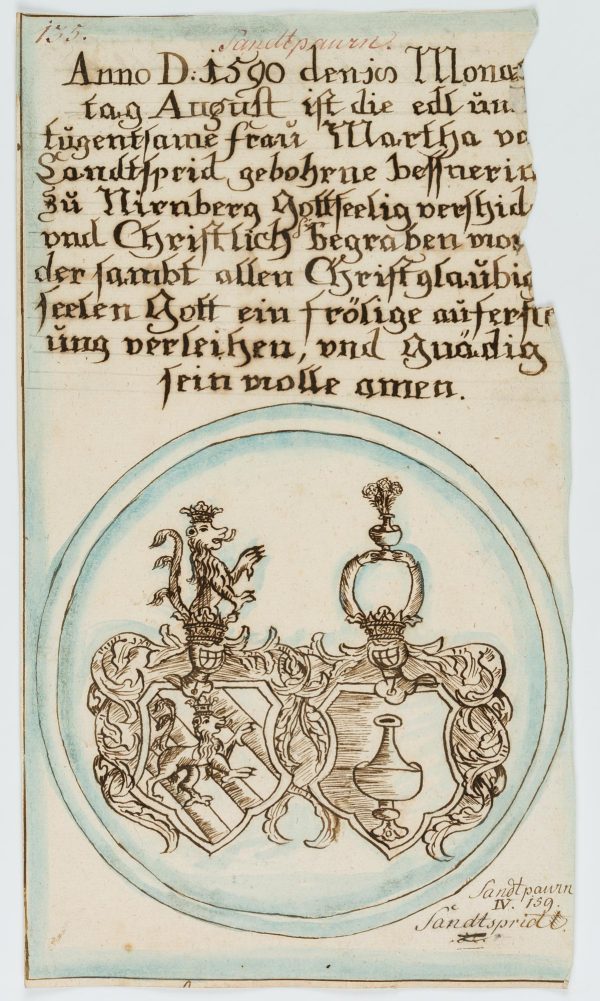 135.
Sandtpaurn.
Anno D: 1590 den Mona
tag August ist die edl un
tugentsame frau Martha vo
Landtsprid gebohrne Vessnerin
zu Nirnberg Gottseelig vershid
vnd Christlich begraben wor
der sambt allen Christglaubig
seelen Gott ein frölige aufferste
ung verleihen, vnd gnädig
sein wolle amen.
Sandtpaurn
IV. 159.
Sandtspridt.